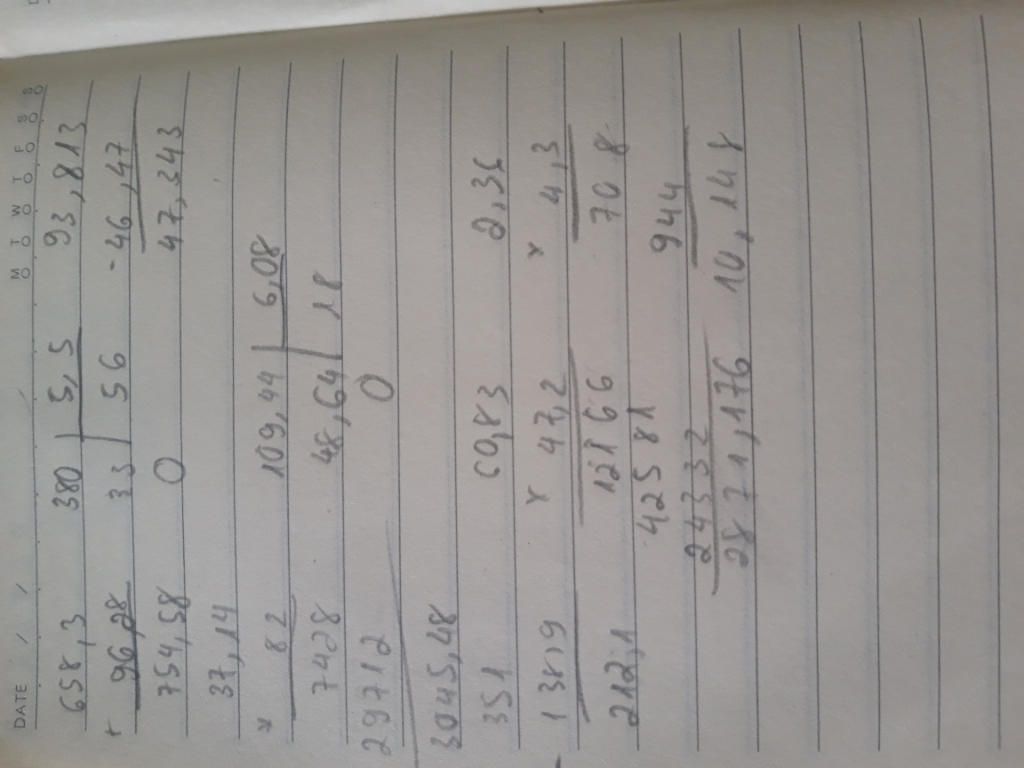 DATE / / M T W T F S S
658,3 380 5,5 93,813
+ 96,28 33 56 - 46,47
754,58 0 47,343
37,14
x 82 109,44 6,08
7428 48,64 18
29712 0
3045,48
351 60,83 2,36
138,9 x 47,2 x 4,3
212,1 12166 708
42581 944
24332 10,148
2871,176